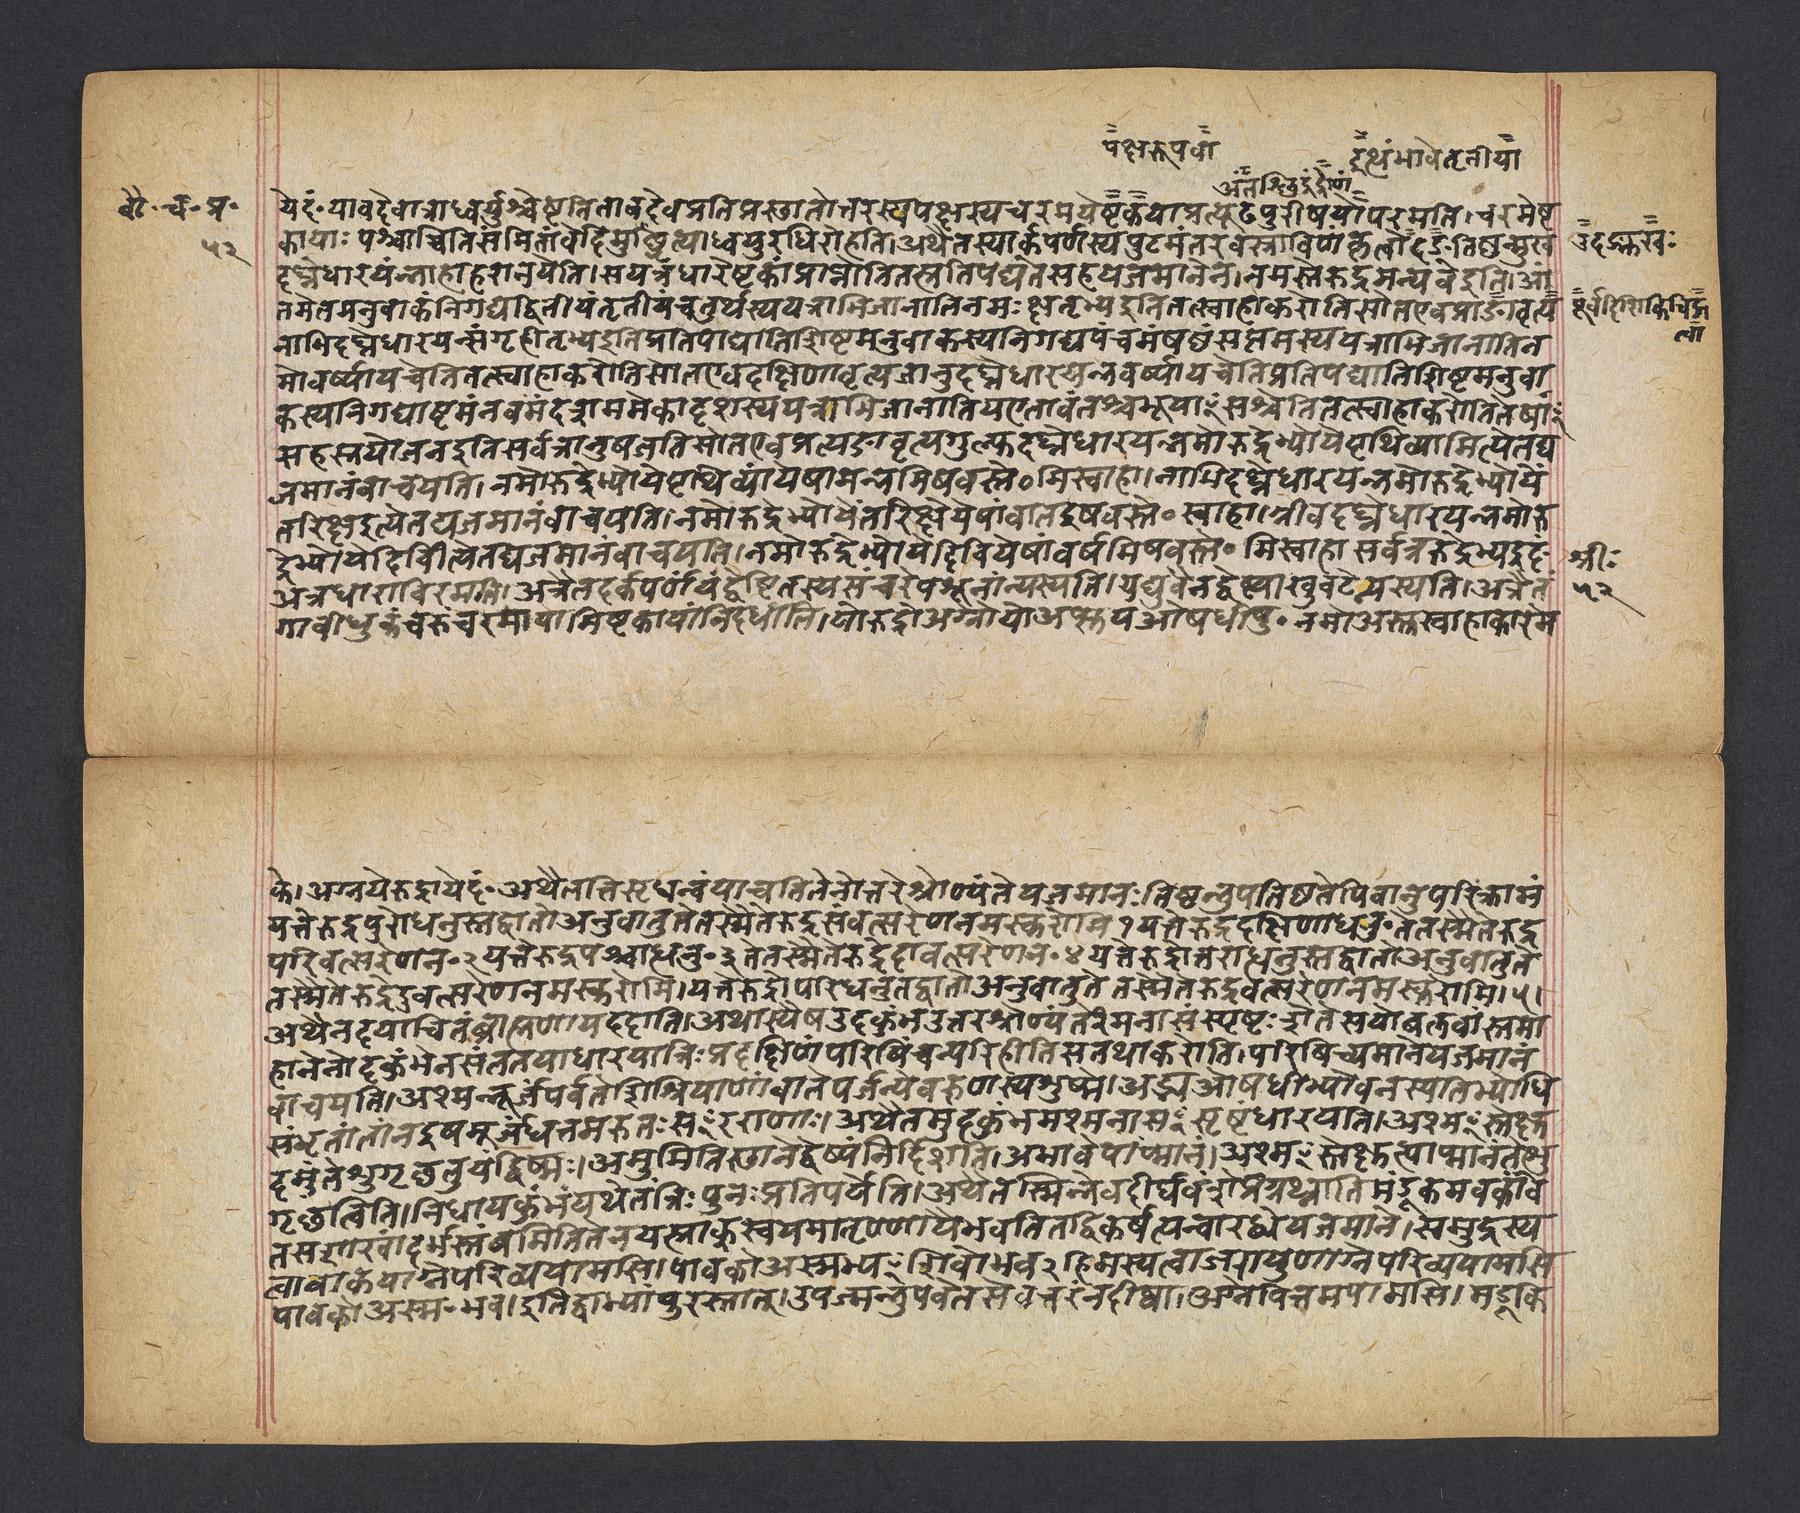 पक्षाक्तपवा
इत्थंभावेतृतीया
बौ॰ च॰ प्र॰
५२
येदं॰यावदेवात्राध्वर्युश्चेष्टतितावदेवप्रतिप्रस्थातोत्तरस्यपक्षस्यचरमयेष्टकयाप्रत्यूढपुरीषयापरमति।चरमेष्ट
कायाः पश्चाच्चितिसंमितांवेदिमुपधृत्याध्वर्युरधिरोहति।अथैतस्यार्कपर्णस्यपुटमंतरवस्राविणंकृत्वोदङ्तिष्ठन्मुख
उदङ्मुखः
दघ्नेधारयंन्ताहाहरानयेति।सयत्रंधारेष्टकांप्राप्नोतितत्प्रतिपद्यतेसहयजमानेन।नमस्तेरुद्रमन्यवेइति।आं
तमेतमनुवाकंनिगद्यद्वितीयंतृतीयंचतुर्थस्ययत्राभिजानातिनमः क्षत्तृभ्यइतितत्स्वाहाकरोतिसोतएवप्राङावृत्य
नाभिदघ्नेधारयन्संगृहीतृभ्यइतिप्रतिपाद्यातिशिष्टमनुवाकस्यनिगद्यपंचमंषष्ठंसप्तमस्ययत्राभिजानातिन
मोवर्ष्यायचेतितत्स्वाहाकरोतिसोतएवदक्षिणावृत्यजानुदघ्नेधारयन्नवर्ष्यायचेतिप्रतिपद्यातिशिष्टमनुवा
कस्यनिगद्याष्टमंनवमंदशममेकादशस्ययत्राभिजानातियएतावंतश्चभूयाꣳसश्चेतितत्स्वाहाकरोतितेषाꣳ
सहस्रयोजनइतिसर्वत्रानुषजतिसोतएवप्रत्यङावृत्यगुल्फदघ्नेधारयन्नमोरुद्रेभ्योयेपृथिव्यामित्येतद्य
जमानंवाचयति।नमोरुद्रेभ्योयेपृथिव्यांयेषामन्नमिषवस्ते॰मिस्वाहा।नाभिदघ्नेधारयन्नमोरुद्रेभ्योयें
तरिक्षइत्येतद्यजमानंवाचयति।नमोरुद्रेभ्योयेंतरिक्षेयेषांवातइषवस्ते॰स्वाहा।ग्रीवदघ्नेधारयन्नमोरु
द्रेभ्योयेदिवीत्येतद्यजमानंवाचयति।नमोरुद्रेभ्योयेदिवियेषांवर्षमिषवस्ते॰मिस्वाहा सर्वत्ररुद्रेभ्यइदं
श्रीः
५२
अत्रधाराविरमति।अत्रैतदर्कपर्णंयंद्वेष्टितस्यसंचरेपशूनांन्यस्यति।यद्युवैनद्वेष्ट्याखुवटेन्यस्यति।अत्रैतं
गावीधुकंचरुंचरमायामिष्टकायांनिदधाति।योरुद्रोअग्नौयोअप्सुयओषधीषु॰नमोअस्तुस्वाहाकारम
के।अग्नयेरुद्रायेदं॰अथैतत्तिसृधन्वंयाचतितेनोत्तरेश्रोण्यंतेयजमानः तिष्ठन्नुपतिष्ठतेपिवानुपरिक्रामं
यत्तेरुद्रपुरोधनुस्तद्वातोअनुवातुतेतस्मैतेरुद्रसंवत्सरेणनमस्करोमि१यत्तेरुद्रदक्षिणाधनु॰तेतस्मैतेरुद्र
परिवत्सरेणन॰२यत्तेरुद्रपश्चाद्धनु॰३तेतस्मैतेरुद्रेदावत्सरेणन॰४यत्तेरुद्रोत्तराद्धनुस्तद्वातोअनुवातुते
तस्मैतेरुद्रेदुवत्सरेणनमस्करोमि।यत्तेरुद्रोपरिधनुस्तद्वातोअनुवातुतेतस्मैतेरुद्रवत्सरेणनमस्करोमि।५।
अथैनदयाचितंब्राह्मणायददाति।अथास्यैषउदकुंभउत्तरश्रोण्यंतेश्मनासंस्पृष्टः
हानेनोदकुंभेनसंततयाधारयात्रिः प्रदक्षिणंपरिषिंचन्परिहीतिसतथाकरोति।परिषिच्यमानेयजमानं
वाचयति।अश्मन्नूर्जंपर्वतेशिश्रियाणांवातेपर्जन्येवरुणस्यशुष्मे।अद्भ्यओषधीभ्योवनस्पतिभ्योधि
संभृतांतांनइषमूर्जंधत्तमरुतः सꣳरराणाः।अथैतमुदकुंभमश्मनासꣳसृष्टंधारयति।अश्मꣳस्तेक्षुत
दमुंतेशुगृच्छतुयंद्विष्मः।अमुमितिस्थानेद्वेष्यंनिर्दिशति।अभावेपाप्मानं।अश्मꣳस्तेक्षुत्पाप्मानंतेशु
गृच्छत्विति।निधायकुंभंयथेतंत्रिः पुनः प्रतिपर्येति।अथैतस्मिन्नेवदीर्घवंशेप्रग्रथ्नातिमंडूकमवकांवे
तसशाखांदर्भस्तंबमितितेनयत्प्राक्स्वयमातृण्णायैभवतितद्विकर्षत्यन्वारब्धेयजमाने।समुद्रस्य
त्वावाकयाग्नेपरिव्ययामसि।पावकोअस्मभ्यꣳशिवोभव२हिमस्यत्वाजरायुणाग्नेपरिव्ययामसि
पावकोअस्म॰भव।इतिद्वाभ्यांपुरस्तात्।उपज्मन्नुपवेतसेवत्तरंनदीष्वा।अग्नेपित्तमपामसि।मंडूकि